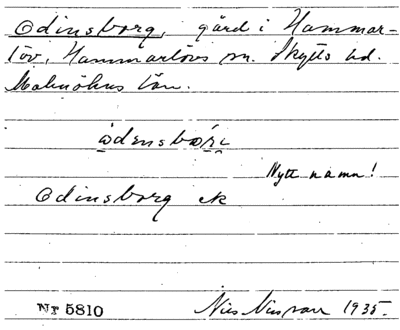 Odinsborg, gård i Hammar-
löv, Hammarlövs sn. Skytts hd.
Malmöhus län.
ȯdensbori
Nytt namn!
Odinsborg ek
Nr 5810
Nils Nilsson 1935.